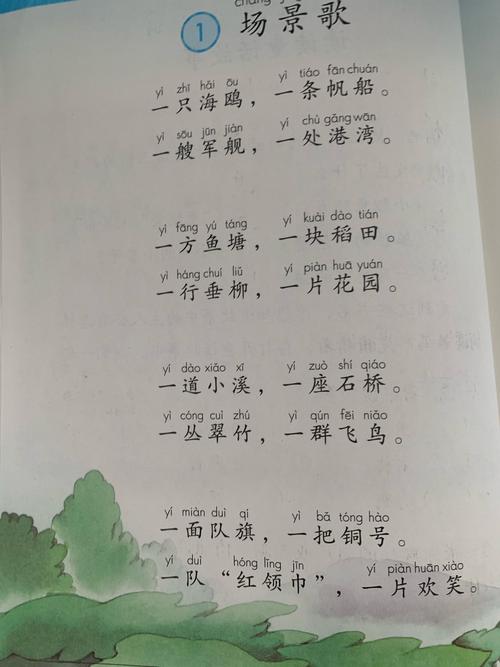 chǎng jǐng gē
1 场景歌
yì zhī hǎi ōu yì tiáo fān chuán
一只海鸥，一条帆船。
yì sōu jūn jiàn yí chù gǎng wān
一艘军舰，一处港湾。
yì fāng yú táng yí kuài dào tián
一方鱼塘，一块稻田。
yì háng chuí liǔ yí piàn huā yuán
一行垂柳，一片花园。
yí dào xiǎo xī yí zuò shí qiáo
一道小溪，一座石桥。
yì cóng cuì zhú yì qún fēi niǎo
一丛翠竹，一群飞鸟。
yí miàn duì qí yì bǎ tóng hào
一面队旗，一把铜号。
yí duì hóng lǐng jīn yí piàn huān xiào
一队“红领巾”，一片欢笑。